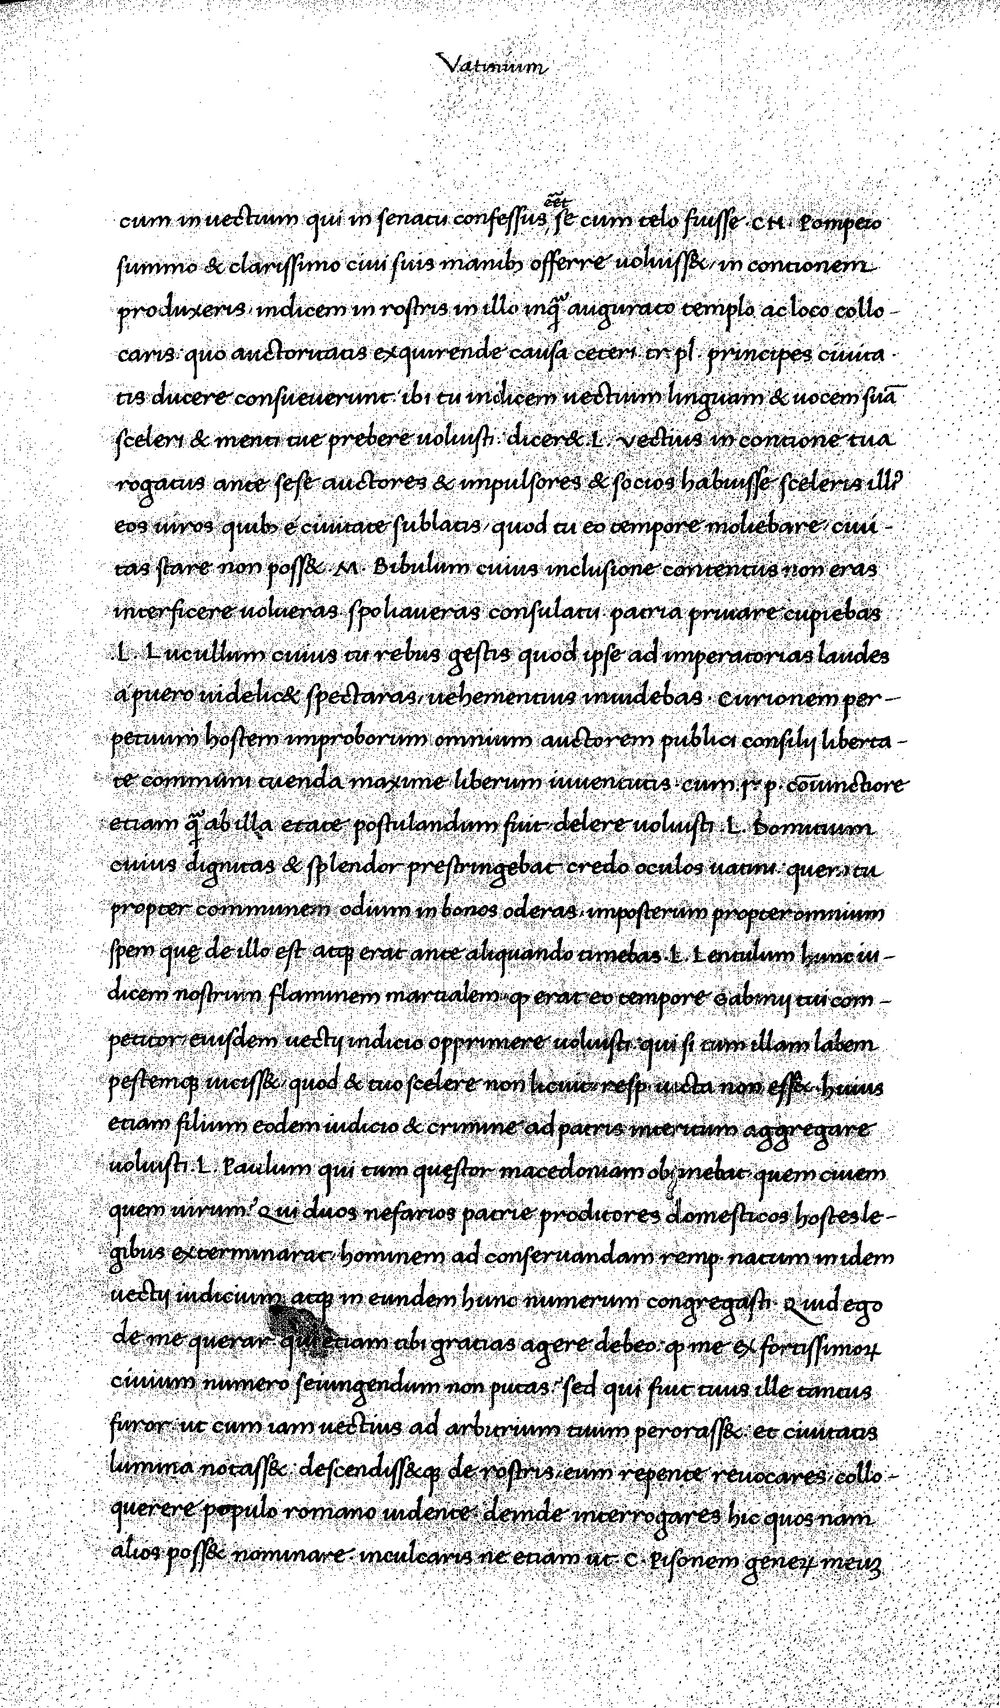 Vatinium
cum in vectium qui in senatu confessus e͞et se cum telo fuisse. CN. Pompeio
summo & clarissimo ciui suis manib; offerre uoluiss& / in contionem
produxeris / indicem in rostris in illo inq̃ augurato templo ac loco collo-
caris: quo auctoritatis exquirende causa ceteri tr. pl. principes ciuita-
tis ducere consueuerunt. ibi tu indicem uectium linguam & uocem suā
sceleri & menti tue prebere uoluisti. dicer& .L. vectius in contione tua
rogatus ante sese auctores & impulsores & socios habuisse sceleris illi?
eos uiros quib; e ciuitate sublatis / quod tu eo tempore moliebare / ciui-
tas stare non poss&. M. Bibulum cuius inclusione contentus non eras
interficere uolueras. spoliaueras consulatu. patria priuare cupiebas
.L. Lucullum cuius tu rebus gestis quod ipse ad imperatorias laudes
a puero uidelic& spectaras / uehementius inuidebas. Curionem per-
petuum hostem improborum omnium auctorem publici consilij liberta-
te communi tuenda maxime liberum iuuentutis. cum .r. p. cōiunctiore
etiam q̃ ab illa etate postulandum fuit / delere uoluisti .L. Domitium
cuius dignitas & splendor prestringebat credo oculos uatini. quem tu
propter communem odium in bonos oderas. imposterum propter omnium
spem quę de illo est atq; erat ante aliquando timebas .L. Lentulum hunc iu-
dicem nostrum flaminem martialem. ꝙ erat eo tempore Gabinij tui com-
petitor / eiusdem uectij indicio opprimere uoluisti. qui si tum illam labem
pestemq; uiciss& / quod & tuo scelere non licuit. resp. uicta non ess&. huius
etiam filium eodem iudicio & crimine ad patris interitum aggregare
uoluisti .L. Paulum qui tum quęstor macedoniam obtinebat. quem ciuem
quem uirum? Qui duos nefarios patrie proditores domesticos hostes le-
gibus exterminarat. hominem ad conseruandam remp. natum in idem
uectij iudicium atq; in eundem hunc numerum congregasti. Quid ego
de me querar. qui etiam tibi gratias agere debeo. ꝙ me ex fortissimoꝝ
ciuium numero seiungendum non putas. sed qui fuit tuus ille tantus
furor. ut cum iam uectius ad arbitrium tuum perorass&. et ciuitatis
lumina notass&. descendiss&q; de rostris / eum repente reuocares / collo-
querere populo romano uidente. deinde interrogares hic quos nam
alios poss& nominare. inculcaris ne etiam ut C. Pisonem geneꝝ meuꝫ